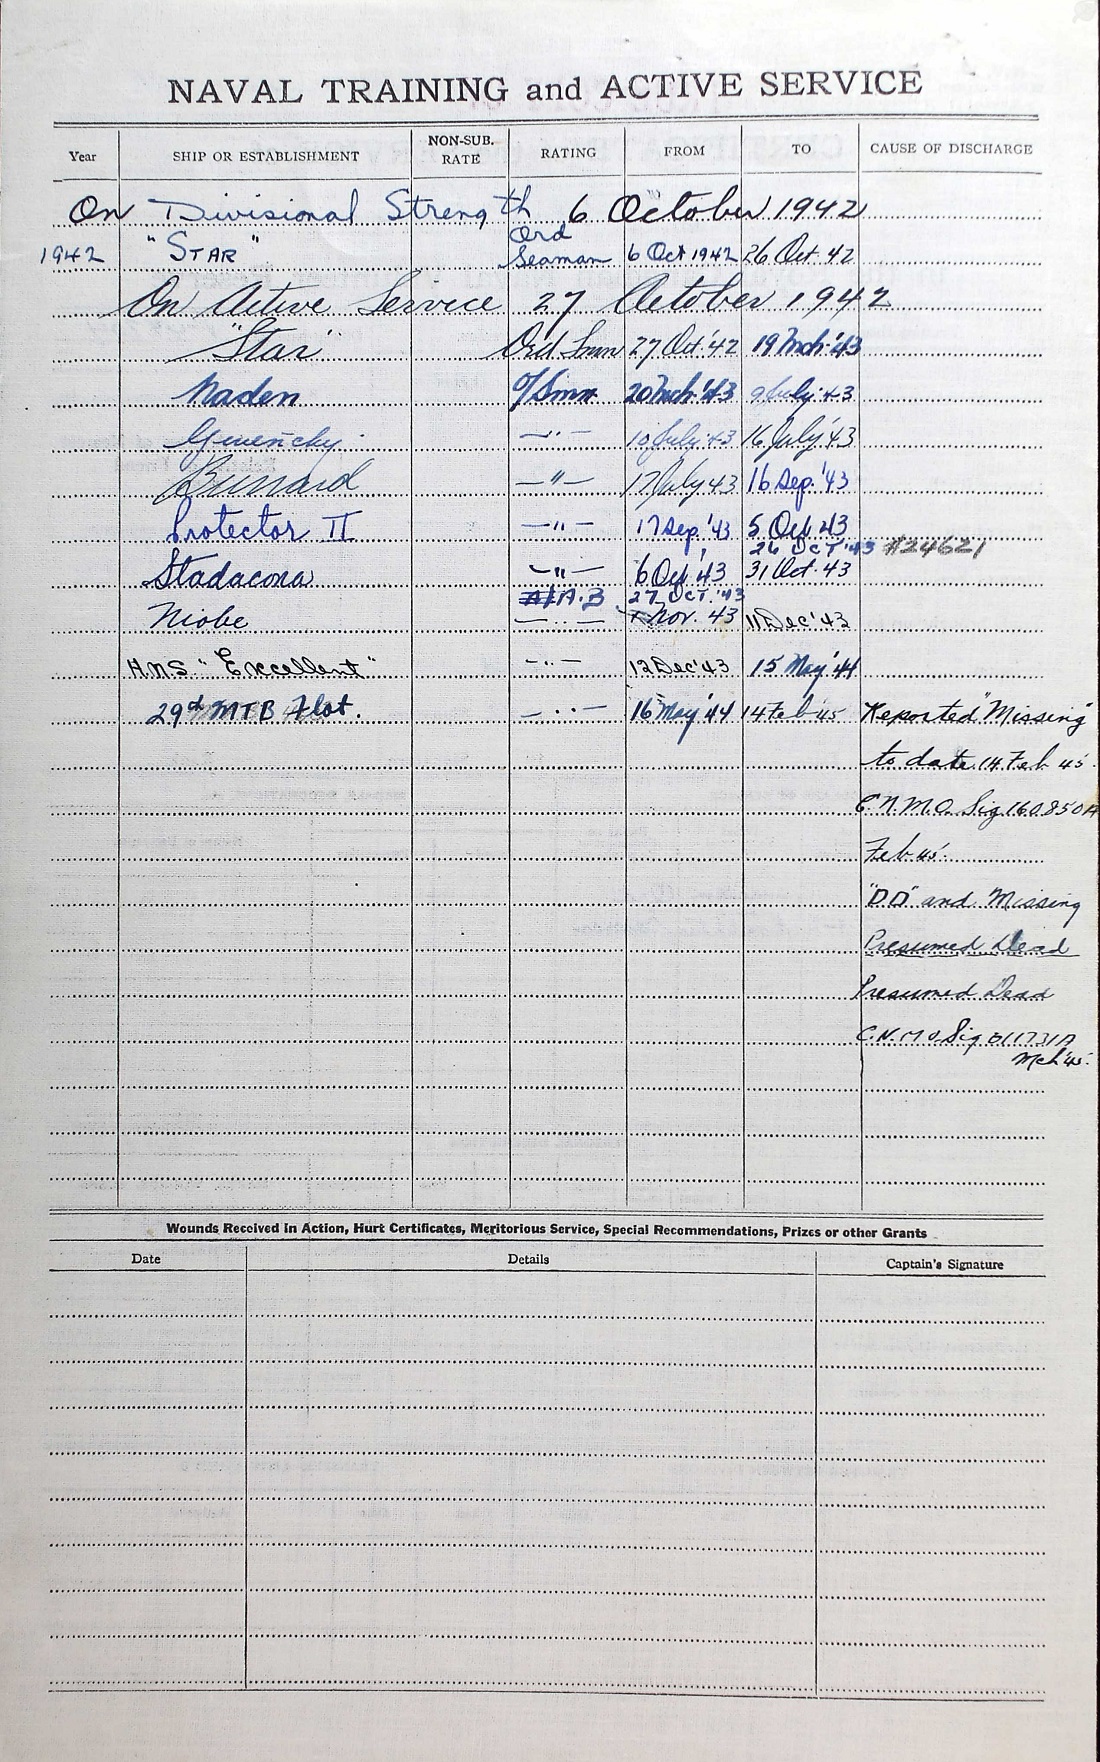 NAVAL TRAINING and ACTIVE SERVICE
Year SHIP OR ESTABLISHMENT NON-SUB. RATE RATING FROM TO CAUSE OF DISCHARGE
On Divisional Strength 6 October 1942
1942 "STAR" Ord Seaman 6 Oct 1942 26 Oct. 42
On Active Service 27 October 1942
"Star" Ord Smn 27 Oct. '42 19 Mch '43
Naden O/Smn. 20 Mch. '43 9 July '43
Givenchy -"- 10 July '43 16 July '43
Burrard -"- 17 July 43 16 Sep. '43
Protector II -"- 17 Sep. '43 5 Oct. 43
26 OCT '43 #24621
Stadacona -"- 6 Oct '43 31 Oct. 43
A/A.B 27 OCT. '43
Niobe -"- 1 Nov. 43 11 Dec '43
H.M.S. "Excellent" -"- 12 Dec '43 15 May '44
29d MTB Flot. -"- 16 May '44 14 Feb '45 Reported "Missing"
to date 14 Feb 45.
C.N.M.O. Sig 160850A
Feb 45.
"DD" and Missing
Presumed Dead
Presumed Dead
C.N.M.O. Sig 011731A
Mch '45.
Wounds Received in Action, Hurt Certificates, Meritorious Service, Special Recommendations, Prizes or other Grants
Date Details Captain's Signature